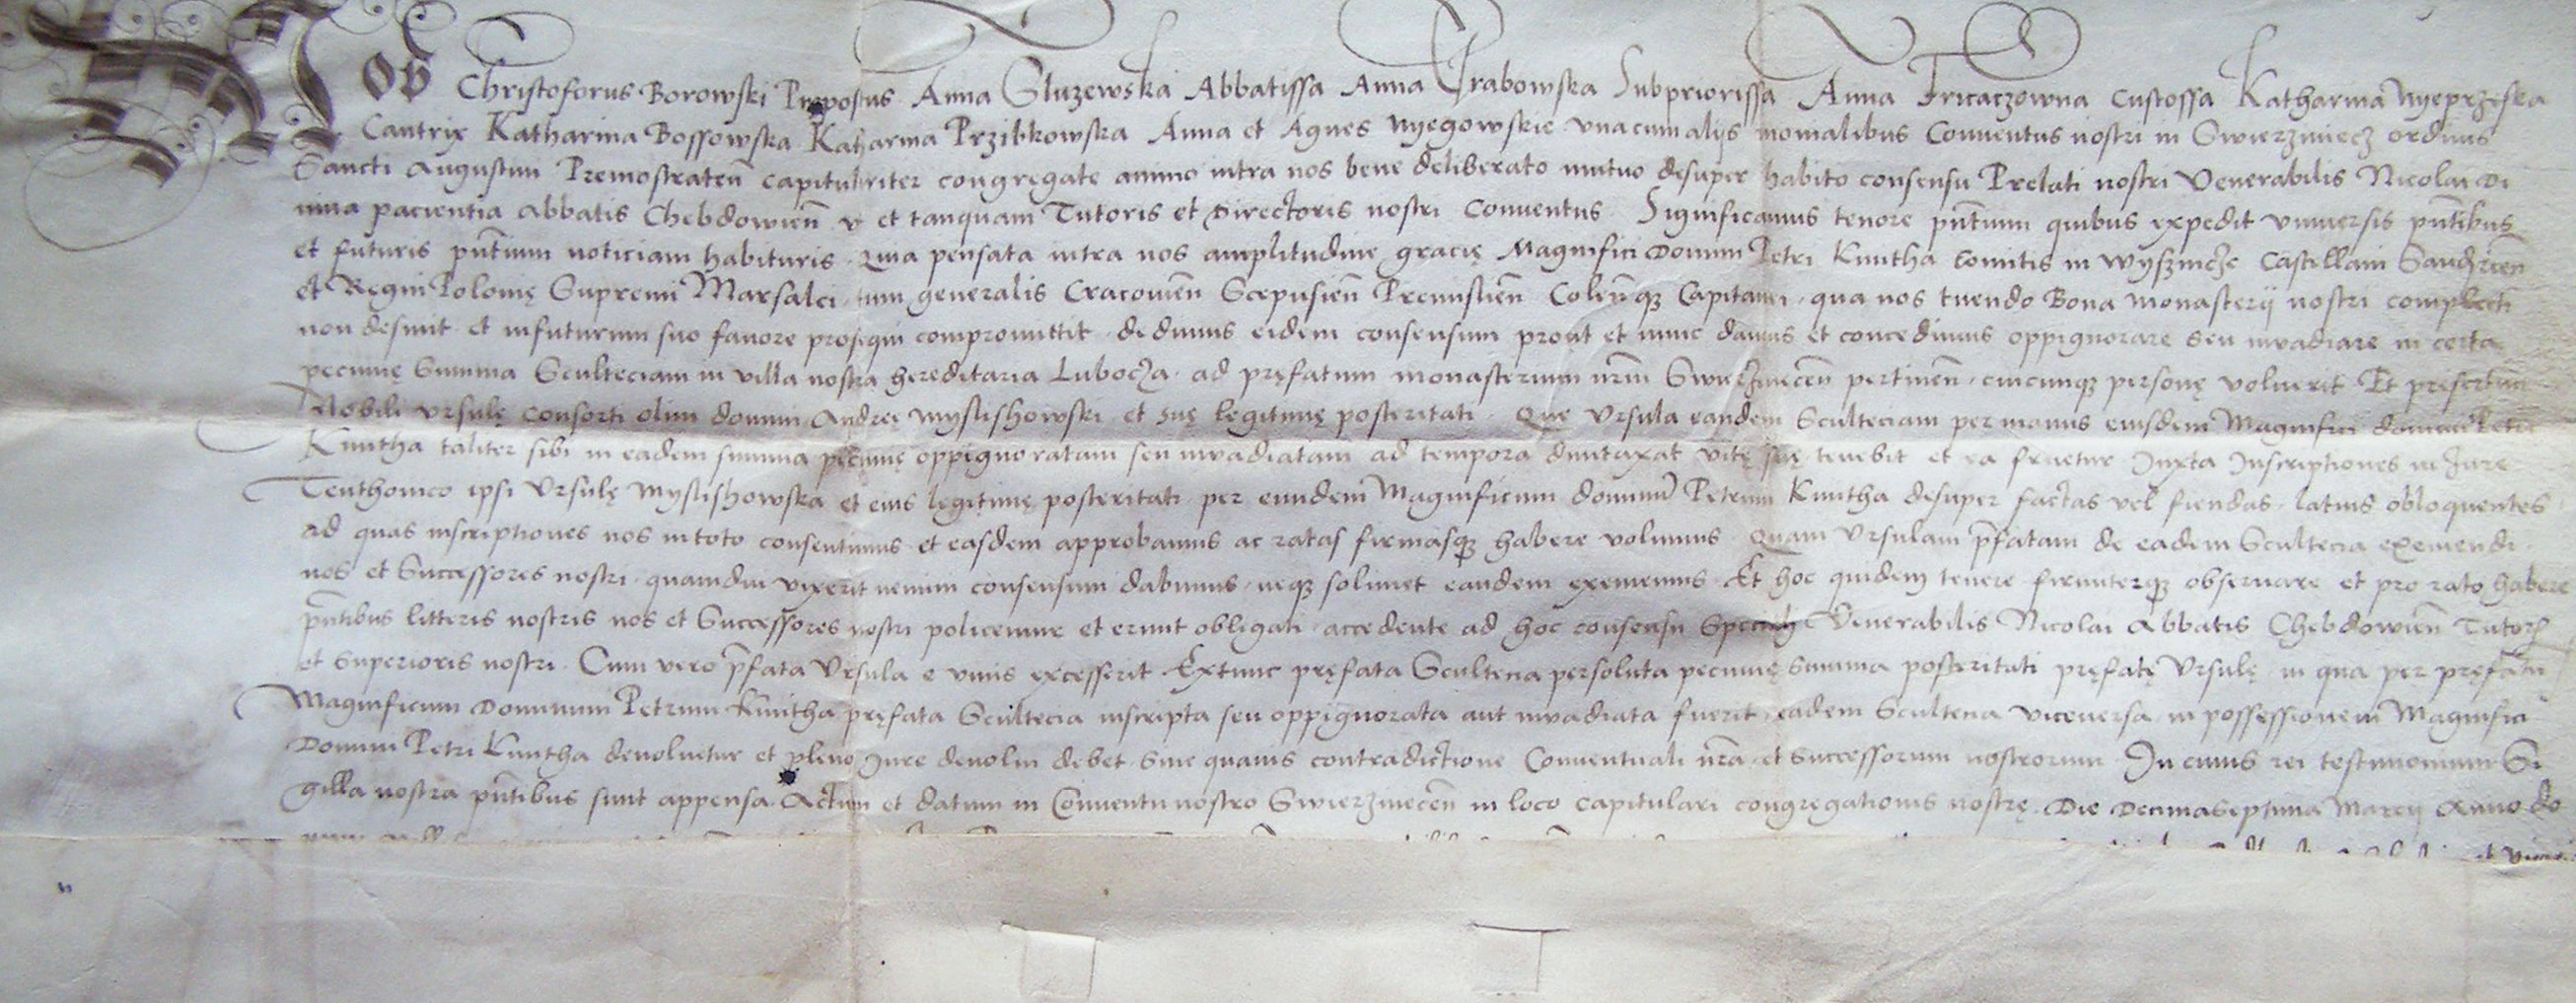 Nos Christoforus Borowski Prepositus Anna Sluzewska Abbatissa Anna Grabowska Subpriorissa Anna Fricaczowna Custossa Katharina Nyeprzeska
Cantrix Katharina Bossowska Katharina Przibkowska Anna et Agnes Nyegowskie unacum alijs monialibus Conventus nostri in Swierziniecz ordinis
Sancti Augustini Premostrateñ capitulariter congregate animo intra nos bene deliberato mutuo desuper habito consensu Prelati nostri Venerabilis Nicolai Di
vina paciencia Abbatis Chebdowieñ et tanquam Tutoris et Directoris nostri Conventus Significamus tenore pñtium quibus expedit universis pñtibus
et futuris pñtium noticiam habituris Quia pensata intra nos amplitudine gracię Magnifici Domini Petri Kmitha Comitis in Wysznicze Castellani
et Regni Polonię Supremi Marsalci tum generalis Cracovieñ Scepusieñ Premislieñ Coleñqz Capitanei qua nos tuendo Bona monasterij nostri complecti
non desinit et in futurum suo favore prosequi compromittit dedimus eidem consensum prout et nunc damus et concedimus oppignorare seu invadiare in certa
pecunię Summa Sculteciam in villa nostra hereditaria Lubocza ad pręfatum monasterium nr̃m Swierziniecen̄ pertineñ cuicunqz personę voluerit Et presertim
Nobili Ursulę Consorti olim domini Andree Myslishowski et suę legitimę posteritati Que Ursula eandem Sculteciam per manus eiusdem Magnifici domini Petri
Kmitha taliter sibi in eadem summa pecunię oppignoratam seu invadiatam ad tempora duntaxat vitę suę tenebit et ea fruetur Juxta Inscriptiones in Jure
Teuthonico ipsi Ursulę Myslishowska et eius legitimę posteritati per eundem Magnificum dominum Petrum Kmitha desuper factas vel fiendas latius obloquentes
ad quas inscriptiones nos in toto consentimus et easdem approbamus ac ratas firmasqz habere volumus Quam Ursulam p̃fatam de eadem Scultecia exemendi
nos et Successores nostri quamdiu vixerit nemini consensum dabimus neqz solimet eandem exememus Et hoc quidem tenere firmiterqz observare et pro rato habere
pñtibus litteris nostris nos et Successores nostri policemur et erunt obligati accedente ad hoc consensu Venerabilis Nicolai Abbatis Chebdowieñ Tutoris
et Superioris nostri Cum vero p̃fata Ursula e vivis excesserit Extunc pręfata Scultecia persoluta pecunię Summa posteritati pręfatę Ursulę in qua per pręfatu
Magnificum Dominum Petrum Kmitha pręfata Scultecia inscripta seu oppignorata aut invadiata fuerit eadem Scultecia viceversa in possessionem Magnifici
Domini Petri Kmitha devolvetur et pleno Jure devolvi debet Sine quavis contradictione Conventuali nr̃a et Successorum nostrorum In cuius rei testimonium Si
gilla nostra pñtibus sunt appensa Actum et datum in Conventu nostro Swierzinieceñ in loco capitulari congregationis nostrę Die Decimaseptima Marcij Anno do